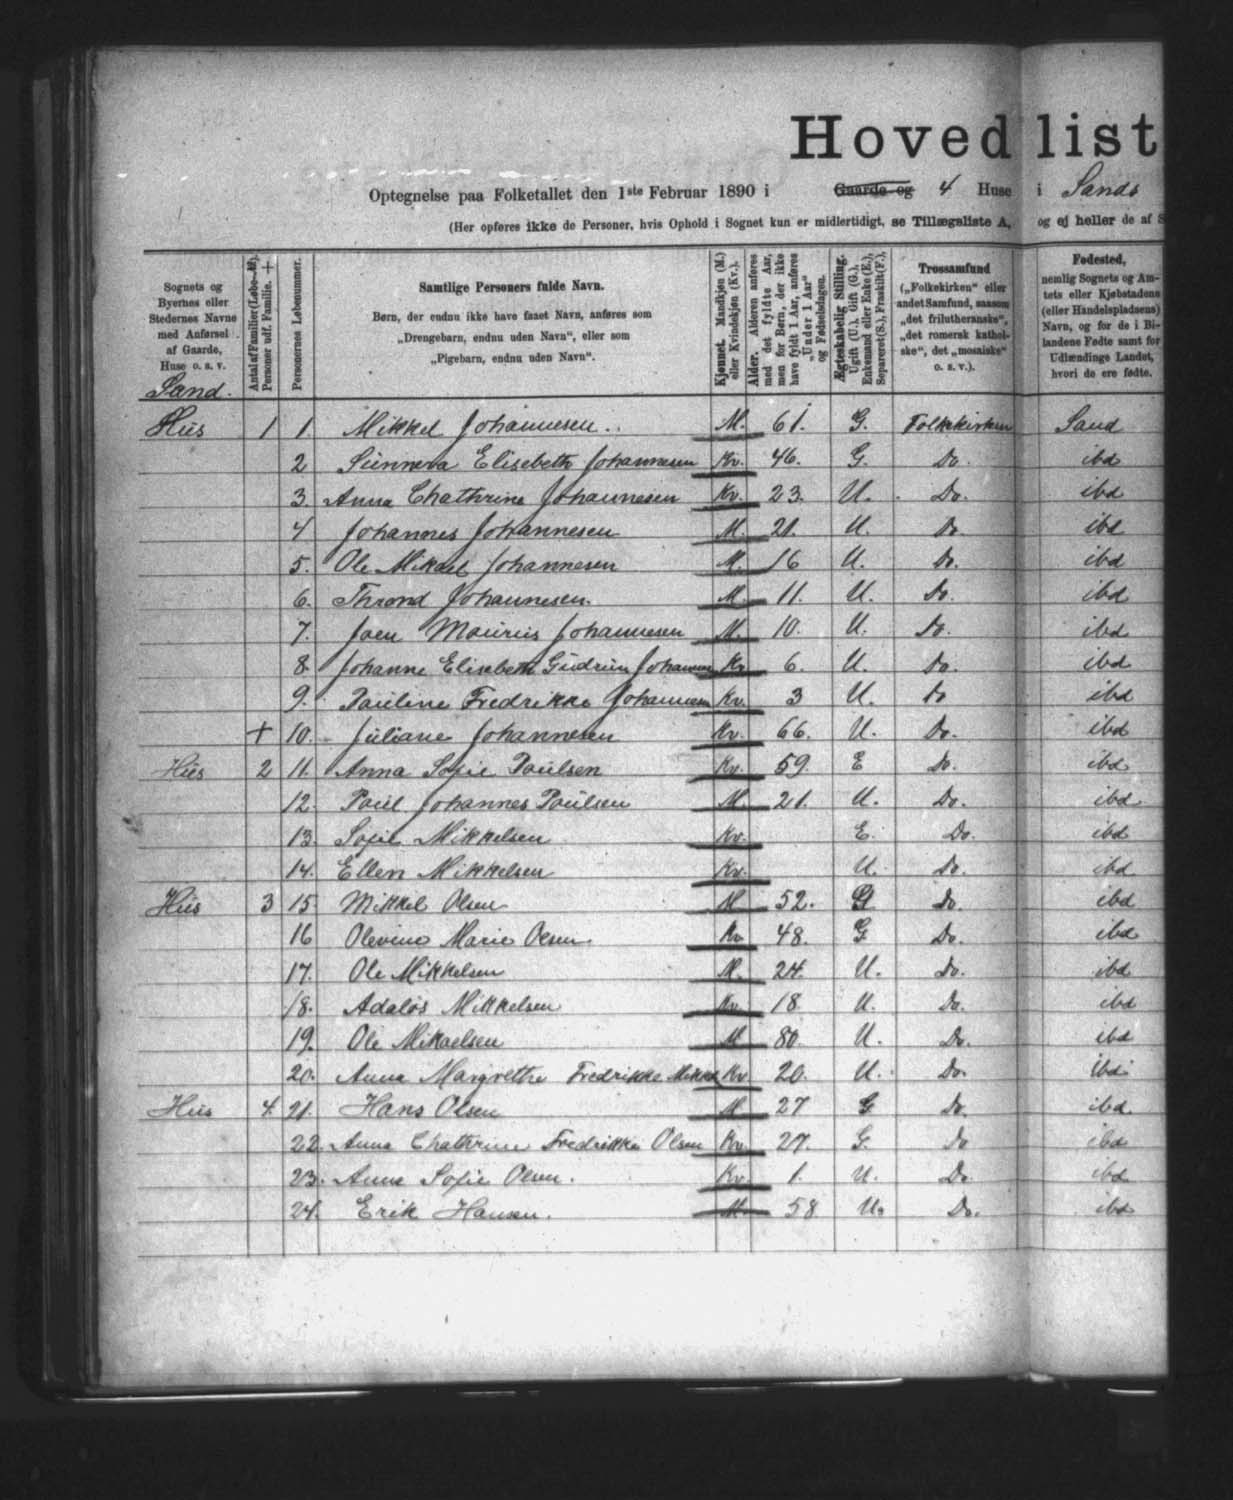 Hovedlist
Optegnelse paa Folketallet den 1ste Februar 1890 i Gaarde og 4 Huse i Sands
(Her opføres ikke de Personer, hvis Ophold i Sognet kun er midlertidigt, se Tillægsliste A, og ej heller de af S
Sognets og Byernes eller Stedernes Navne med Anførsel af Gaarde, Huse o. s. v.
Antal af Familier (Løbe-Nr). Personer udf. Familie. +
Personernes Løbenummer.
Samtlige Personers fulde Navn.
Børn, der endnu ikke have faaet Navn, anføres som
„Drengebarn, endnu uden Navn“, eller som
„Pigebarn, endnu uden Navn“.
Kjønnet. Mandkjøn (M.) eller Kvindekjøn (Kv.).
Alder. Alderen anføres med det fyldte Aar, men for Børn, der ikke have fyldt 1 Aar, anføres „Under 1 Aar“ og Fødselsdagen.
Ægteskabelig Stilling. Ugift (U.), Gift (G.), Enkemand eller Enke (E.), Separeret (S.), Fraskilt (F.).
Trossamfund („Folkekirken“ eller andet Samfund, saasom „det frilutheranske“, „det romersk katholske“, det „mosaiske“ o. s. v.).
Fødested, nemlig Sognets og Amtets eller Kjøbstadens (eller Handelspladsens) Navn, og for de i Bilandene Fødte samt for Udlændinge Landet, hvori de ere fødte.
Sand.
Hus 1 1. Mikkel Johannesen.. M. 61. G. Folkekirken Sand
2 Sunneva Elisebeth Johannesen Kv. 46. G. Do. ibd
3. Anna Chathrine Johannesen Kv. 23. U. Do. ibd
4 Johannes Johannesen M. 21. U. Do ibd
5. Ole Mikael Johannesen M. 16 U. Do. ibd
6. Thrond Johannesen. M. 11. U. Do. ibd
7. Joen Maurius Johannesen M. 10. U. Do. ibd
8. Johanne Elisebeth Gudrun Johannesen Kv 6. U. Do. ibd
9. Pauline Fredrikke Johannesen Kv. 3 U. Do ibd
+ 10. Juliane Johannesen Kv. 66. U. Do. ibd
Hus 2 11. Anna Sofie Paulsen Kv. 59. E Do. ibd
12. Paul Johannes Paulsen M. 21. U. Do. ibd
13. Sofie Mikkelsen Kv. E. Do. ibd
14. Ellen Mikkelsen Kv. U. Do. ibd
Hus 3 15. Mikkel Olsen M 52. G Do. ibd
16 Olevine Marie Olsen. Kv 48. G Do. ibd
17. Ole Mikkelsen M. 24. U. Do. ibd
18. Adalos Mikkelsen Kv 18. U. Do. ibd
19. Ole Mikaelsen M 80. U. Do. ibd
20. Anna Margrethe Fredrikke Mikkel Kv 20. U. Do. ibd
Hus 4. 21. Hans Olsen M 27 G Do. ibd.
22. Anna Chathrine Fredrikke Olsen Kv. 27. G. Do ibd
23. Anna Sofie Olsen. Kv. 1. U. Do. ibd
24. Erik Hansen. M. 58 U. Do. ibd